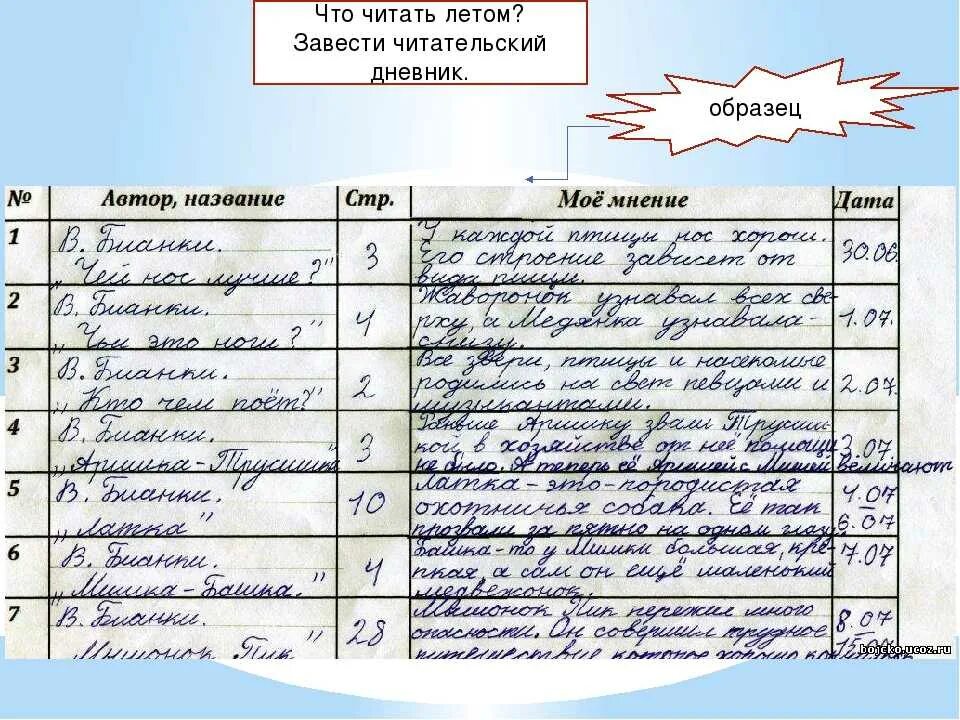 Что читать летом?
Завести читательский
дневник.
образец
№ Автор, название Стр. Моё мнение Дата
1 В. Бианки. 3 У каждой птицы нос хорош. 30.06.
„Чей нос лучше?" Его строение зависет от
вида пищи.
2 В. Бианки. 4 Жаворонок узнавал всех све- 1.07.
„Чьи это ноги?" рху, а Медянка узнавала-
снизу.
3 В. Бианки. 2 Все звери, птицы и насекомые 2.07.
„Кто чем поёт?" родились на свет певцами и
музыкантами.
4 В. Бианки. 3 Раньше Аришку звали Трусиш- 3.07.
„Аришка-Трусишка" кой, в хозяйстве от неё помощи
не было. А теперь её Аришей с Мишей величают
5 В. Бианки. 10 Латка-это-породистая 4.07
„Латка" охотничья собака. Её так 6.07
прозвали за пятно на одном глазу.
6 В. Бианки. 4 Башка-то у Мишки большая, кре- 7.07
„Мишка-Башка." пкая, а сам он ещё маленький
медвежонок.
7 В. Бианки. 28 Мышонок Пик пережил много 8.07
„Мышонок Пик" опасности. Он совершил трудное
путешествие которое хорошо
bojcko.ucoz.ru